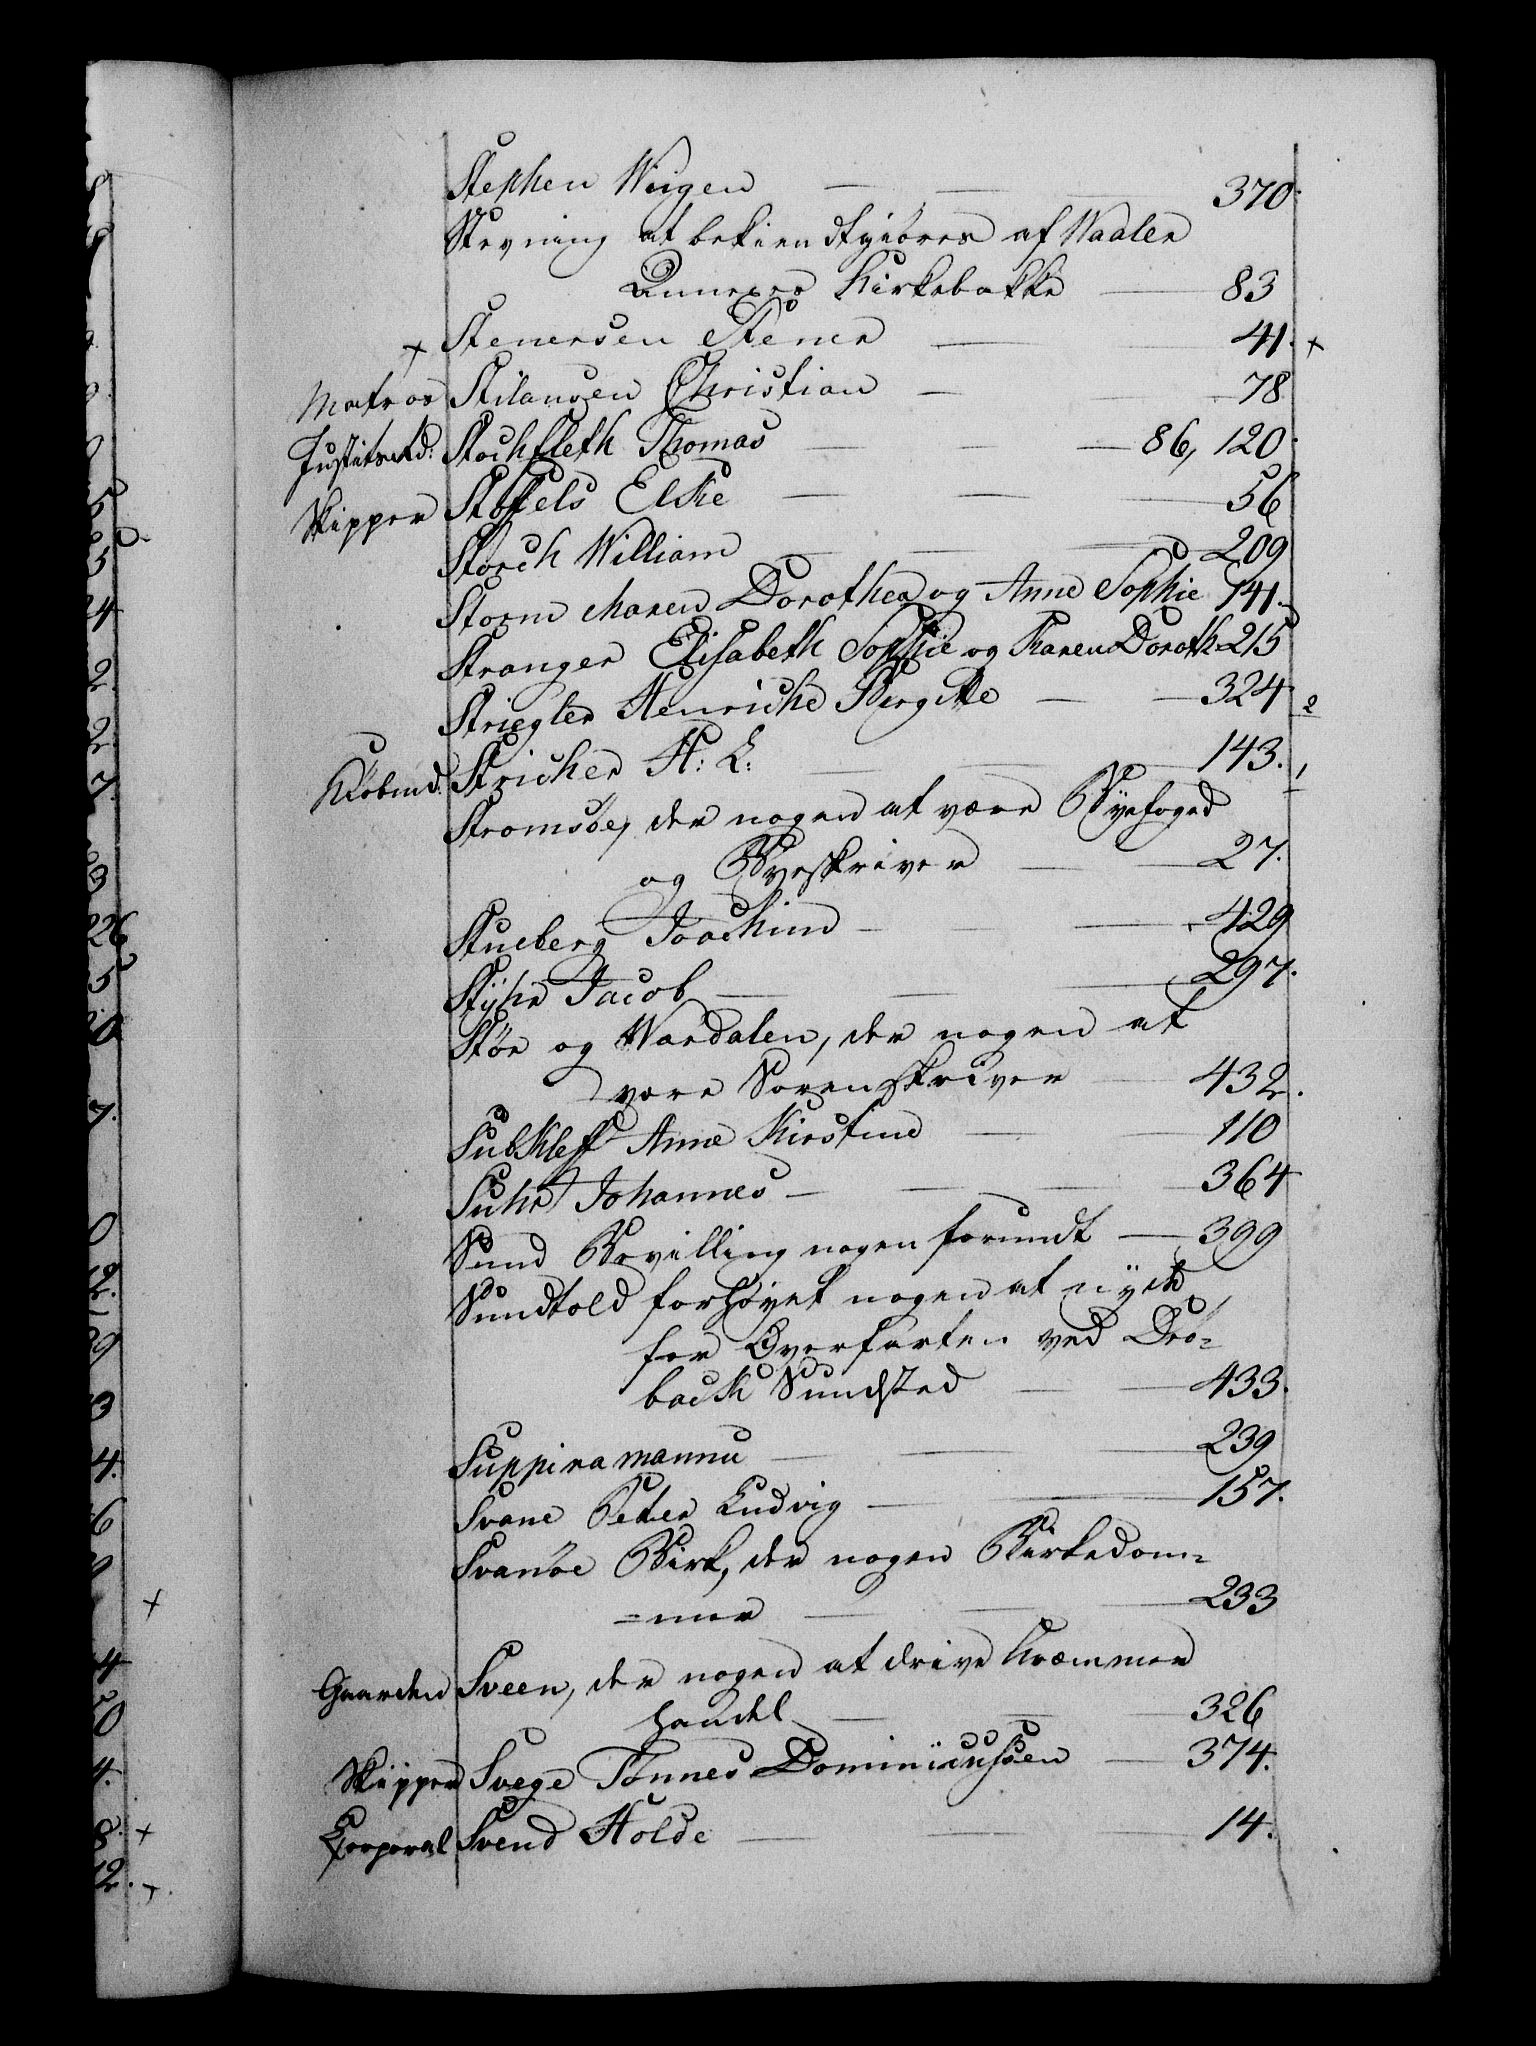 Stephen Wiigen — — — 370.
Stevning at bekiendtgiøres af Waaler
Annexes Kirkebakke — 83
+ Stenersen Stener — — 41. +
Matros Stilausen Christian — — 78
Justitsrd: Stochfleth Thomas — — — 86, 120.
Skipper Stoffels Elske — — — 56
Storch William — — — 209
Storm Maren Dorothea og Anne Sophie 141.
Stranger Elisabeth Sophie og Karen Doroth. 215
Striegler Henriche Bergitte — — 324. 2
Kiøbmd: Stricker H: L: — — — 143. 1
Stromsøe, der nogen at være Byefoged
og Byeskriver — — 27.
Stueberg Joachim — — — 429
Stÿhr Jacob — — — 297.
Stør og Wardalen, der nogen at
være Sorenskriver — 432.
Subkleff Anne Kirstine — — 110
Suhr Johannes — — — 364
Sund Bevilling nogen forundt — 399
Sundtold forhøyet nogen at nyde
for Overfarten ved Drø-
back Sundsted — — 433.
Suppiramannu — — — 239
Svane Peter Ludvig — — 157.
Svanøe Birk, der nogen Birkedom=
=mer — — — 233
Gaarden Sveen, der nogen at drive Kræmmer
handel — — — 326
Skipper Svege Tønnes Dominicussen — 374.
Corporal Svend Holde — — — 14.